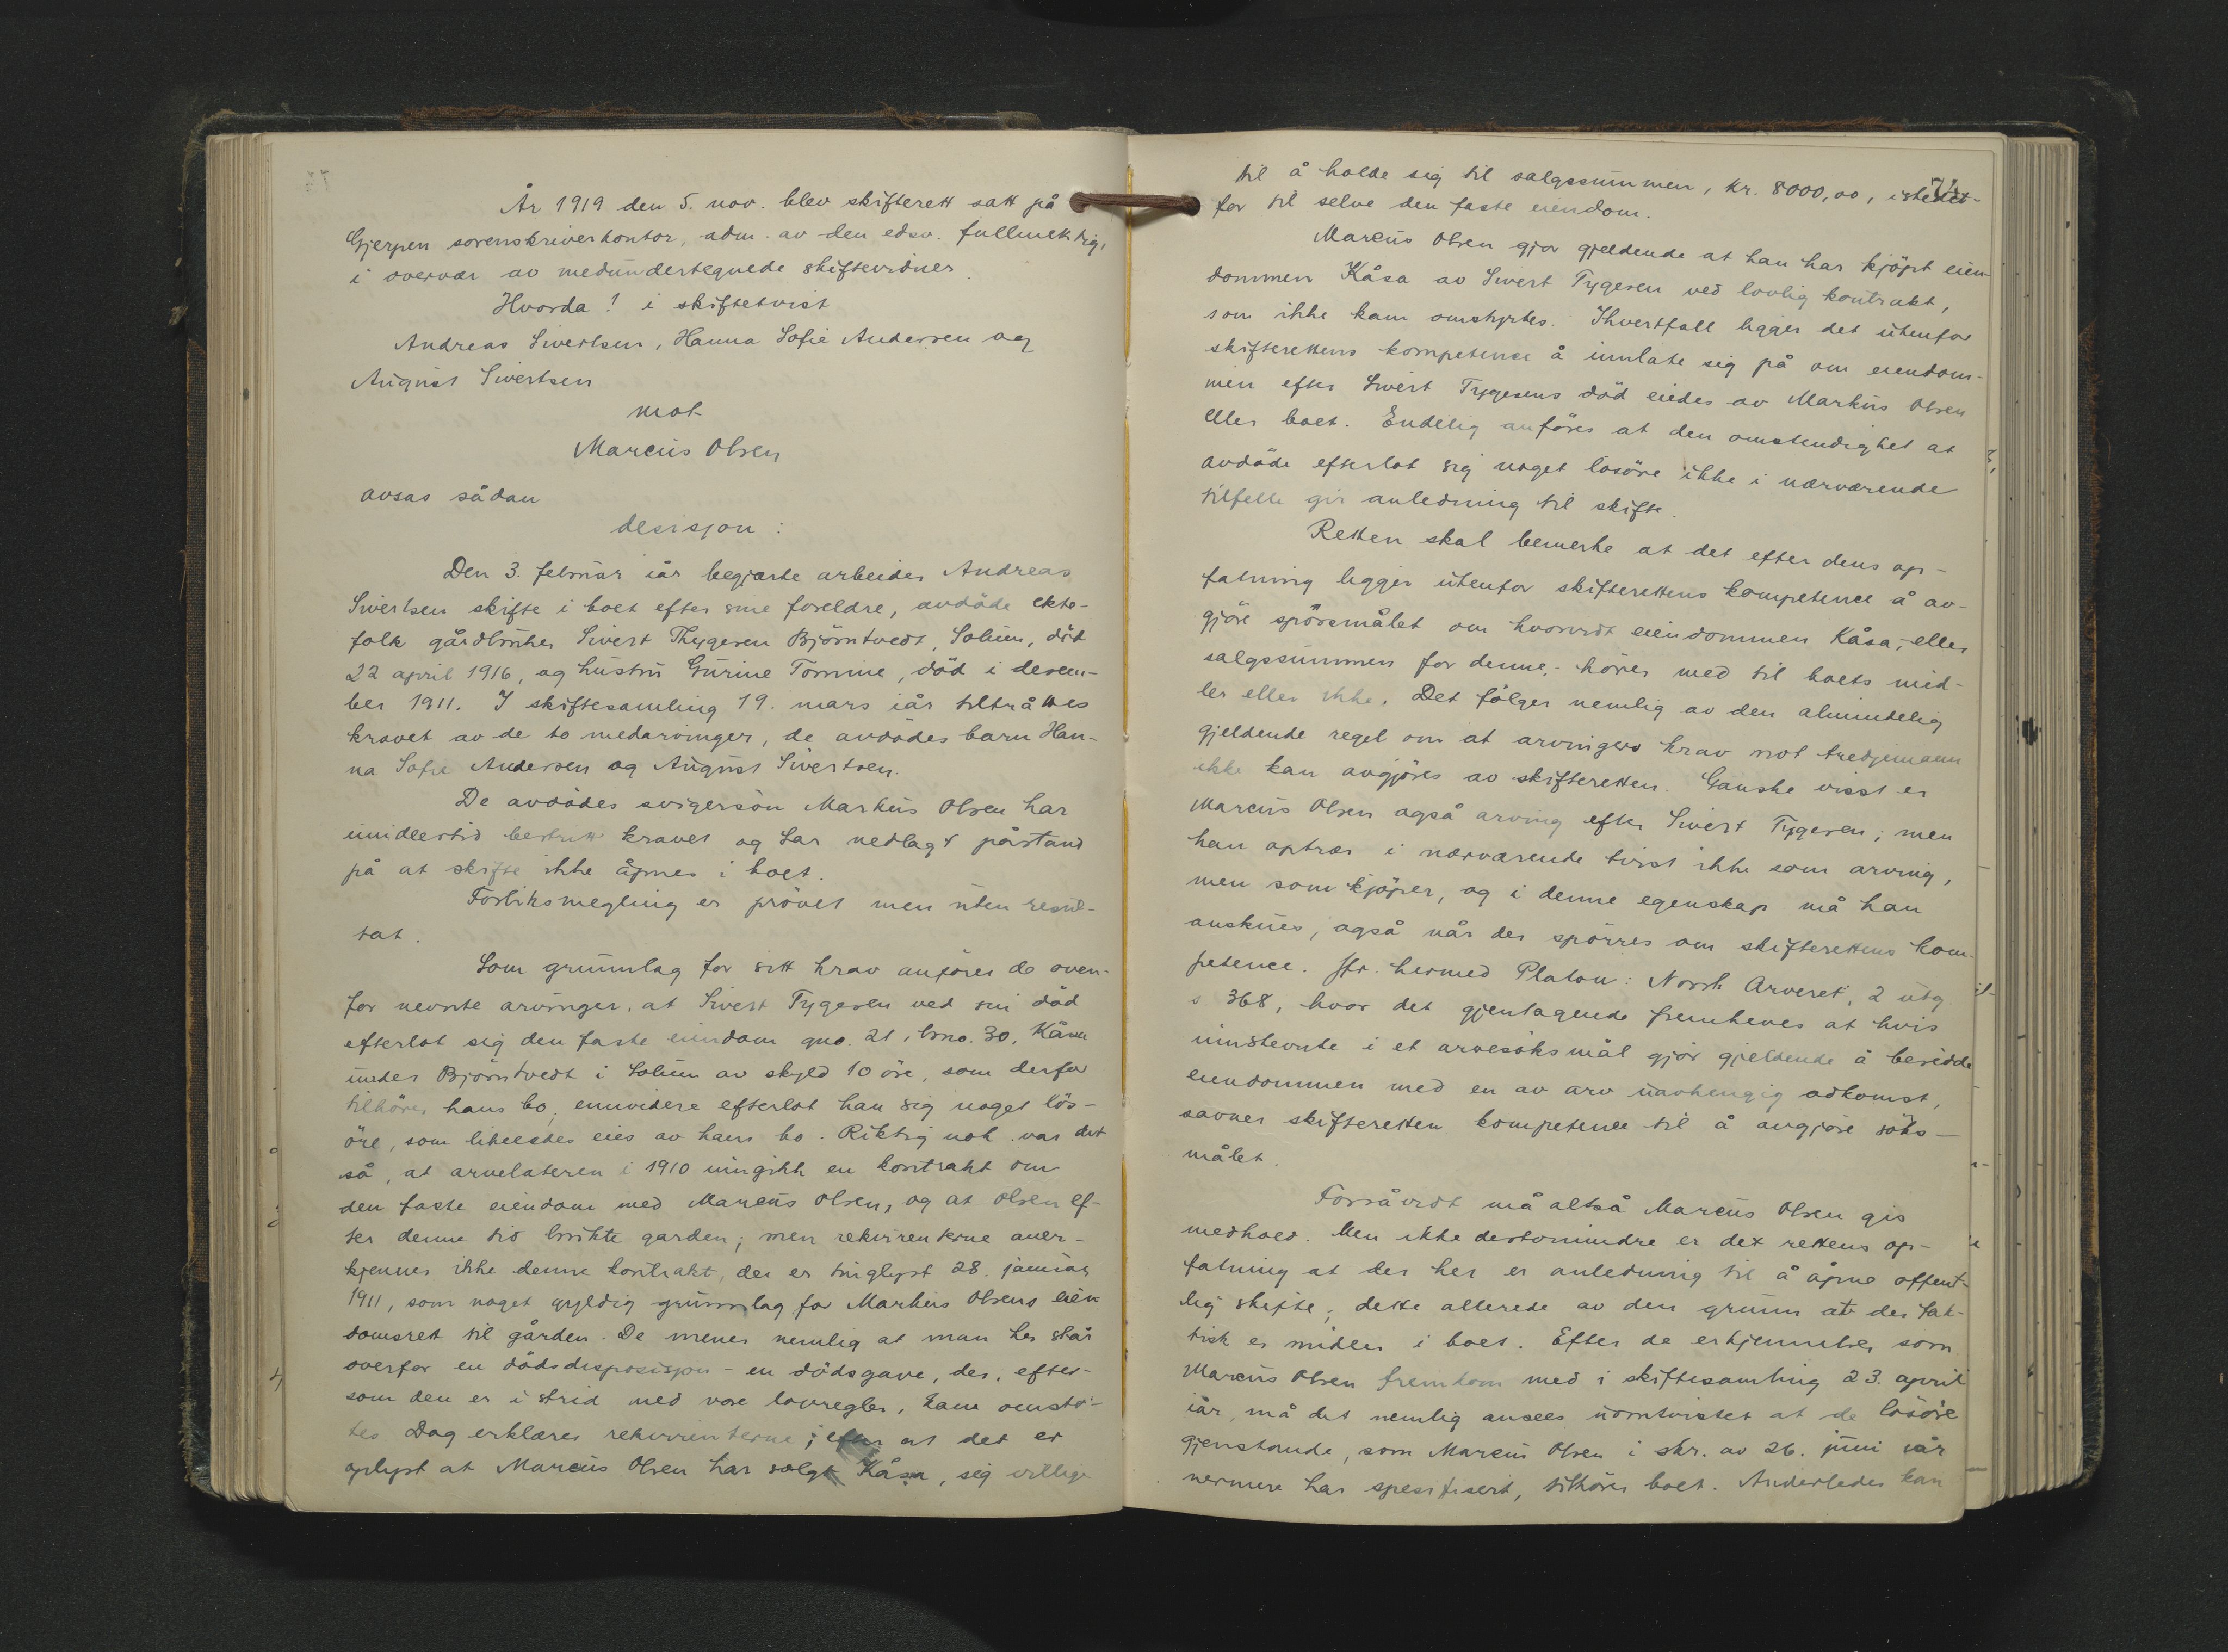 År 1919 den 5. nov. blev skifterett satt på
Gjerpen sorenskriverkontor, adm. av den edsv. fullmektig,
i overvær av medundertegnede skiftevidner.
Hvorda! i skiftetvist
Andreas Sivertsen, Hanna Sofie Andersen og
August Sivertsen
mot
Marcus Olsen
avsas sådan
desisjon:
Den 3. februar iår begjærte arbeider Andreas
Sivertsen skifte i boet efter sine foreldre, avdöde ekte-
folk gårdbruker Sivert Thygesen Björntvedt, Solum, död
22 april 1916, og hustru Gurine Tomine, död i desem-
ber 1911. I skiftesamling 19. mars iår tiltråttes
kravet av de to medarvinger, de avdödes barn Han-
na Sofie Andersen og August Sivertsen.
De avdödes svigersön Markus Olsen har
imidlertid bestritt kravet og har nedlagt påstand
på at skifte ikke åpnes i boet.
Forliksmegling er prövet men uten resul-
tat.
Som grunnlag for sitt krav anförer de oven-
for nevnte arvinger, at Sivert Tygesen ved sin död
efterlot sig den faste eiendom gno. 21, bno. 30, Kåsa
under Björntvedt i Solum av skyld 10 öre, som derfor
tilhörer hans bo, ennvidere efterlot han sig noget lös-
öre, som likeledes eies av hans bo. Riktig nok var det
så, at arvelateren i 1910 inngikk en kontrakt om
den faste eiendom med Marcus Olsen, og at Olsen ef-
ter denne tid brukte garden; men rekvirentene aner-
kjenner ikke denne kontrakt, der er tinglyst 28. januar
1911, som noget gyldig grunnlag for Markus Olsens eien
domsrett til gården. De mener nemlig at man her står
overfor en dödsdisposisjon - en dödsgave, der, efter-
som den er i strid med vore lovregler, kan omstö-
tes. Dog erklærer rekvirentene; efter at det er
oplyst at Marcus Olsen har solgt Kåsa, sig villige
til å holde sig til salgssummen, kr. 8000,00, istedet-
for til selve den faste eiendom.
Marcus Olsen gjör gjeldende at han har kjöpt eien-
dommen Kåsa av Sivert Tygesen ved lovlig kontrakt,
som ikke kan omstyrtes. Ihvertfall ligger det utenfor
skifterettens kompetence å innlate sig på om eiendom-
men efter Sivert Tygesens död eiedes av Markus Olsen
eller boet. Endelig anföres at den omstendighet at
avdöde efterlot sig noget lösöre ikke i nærværende
tilfelle gir anledning til skifte.
Retten skal bemerke at det efter dens op-
fatning ligger utenfor skifterettens kompetence å av-
gjöre spörsmålet om hvorvidt eiendommen Kåsa, - eller
salgssummen for denne, - hörer med til boets mid-
ler eller ikke. Det fölger nemlig av den almindelig
gjeldende regel om at arvingers krav mot tredjemann
ikke kan avgjöres av skifteretten. Ganske visst er
Marcus Olsen også arving efter Sivert Tygesen; men
han optrær i nærværende tvist ikke som arving,
men som kjöper, og i denne egenskap må han
ansknes, også når der spörres om skifterettens kom-
petence. Jfr. hermed Platou: Norsk Arveret, 2 utg
s 368, hvor det gjentagende fremheves at hvis
innstevnte i et arvesöksmål gjör gjeldende å besidde
eiendommen med en av arv uavhengig adkomst,
savner skifteretten kompetence til å avgjöre söks-
målet.
Forsåvidt må altså Marcus Olsen gis
medhold. Men ikke destomindre er det rettens op-
fatning at der her er anledning til å åpne offent-
lig skifte, dette allerede av den grunn at der fak-
tisk er midler i boet. Efter de erkjennelser som
Marcus Olsen fremkom med i skiftesamling 23. april
iår, må det nemlig ansees uomtvistet at de lösöre
gjenstande, som Marcus Olsen i skr. av 26. juni iår
nermere har spesifisert, tilhörer boet. Anderledes kan